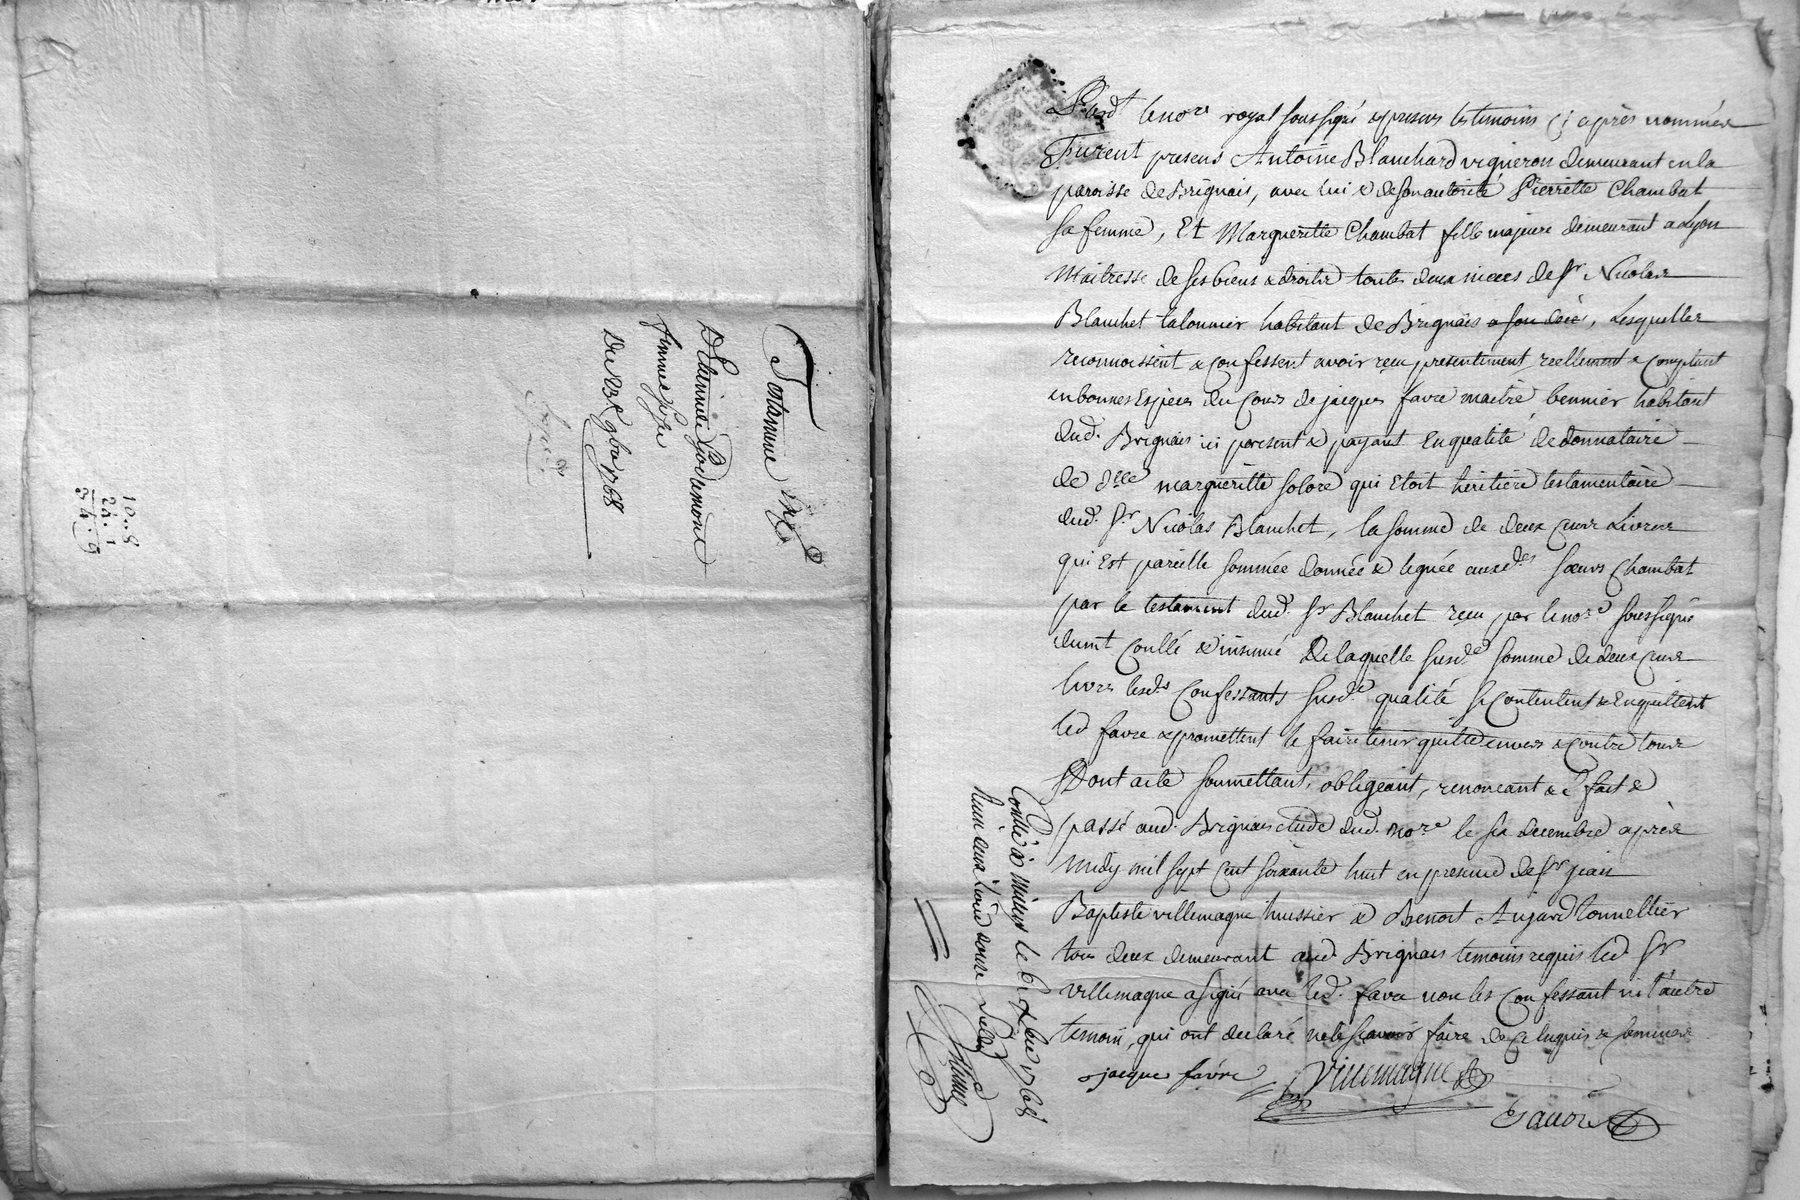 Testament
D'Etiennette
femme
Du 23e 9bre 1768
10..8
24.1
34.9
Pardt le nore royal soussigné & presens les temoins cy après nommés
Furent presens Antoine Blanchard vigneron demeurant en la
paroisse de Brignais, avec lui & de son autorité Pierrette Chambat
sa femme, Et Margueritte Chambat fille majeure demeurant a Lyon
Maitresse de ses biens & droits toutes deux nieces de Sr Nicolas
Blanchet talonnier habitant de Brignais a son décès, Lesquelles
reconnoissent & confessent avoir reçu presentement reellement & comptant
en bonnes Espèces du Cours de jacques favre maitre bennier habitant
dud. Brignais ici present & payant En qualité de donnataire
de dlle margueritte solore qui Etoit héritière testamentaire
dud. Sr Nicolas Blanchet, la somme de deux cens Livres
qui Est pareille somme donnée & leguée auxdes soeurs Chambat
par le testament dud. Sr Blanchet reçu par le nore soussigné
dument Conllé & insinué De laquelle susde somme de deux cens
livres lesds Confessants susde qualité se Contentent & En quittent
led favre & promettent le faire tenir quitte envers & contre tous
Dont acte soumettant, obligeant, renonceant &c fait &
passé aud. Brignais etude dud. nore le six decembre après
midy mil sept cent soixante huit en presence de Sr jean
Baptiste villemagne huissier & Benoit Aujard tonnellier
tous deux demeurant aud. Brignais temoins requis led Sr
villemagne a signé avec led. favre non les Confessant ni l'autre
temoin, qui ont declaré ne le scavoir faire de ce Enquis & sommés
jacque favre Villemagne
Conllé à millery le 6e Xbre 1768